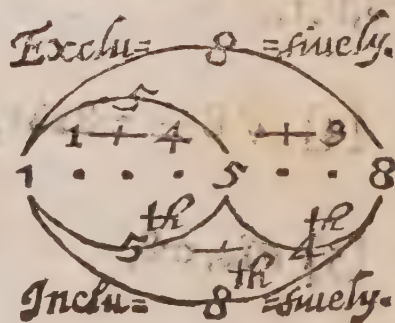 Exclu= 8 =siuely.
5
1 + 4 + 3
1 • • • 5 • • 8
5th + 4th
th
Inclu= 8 =siuely.